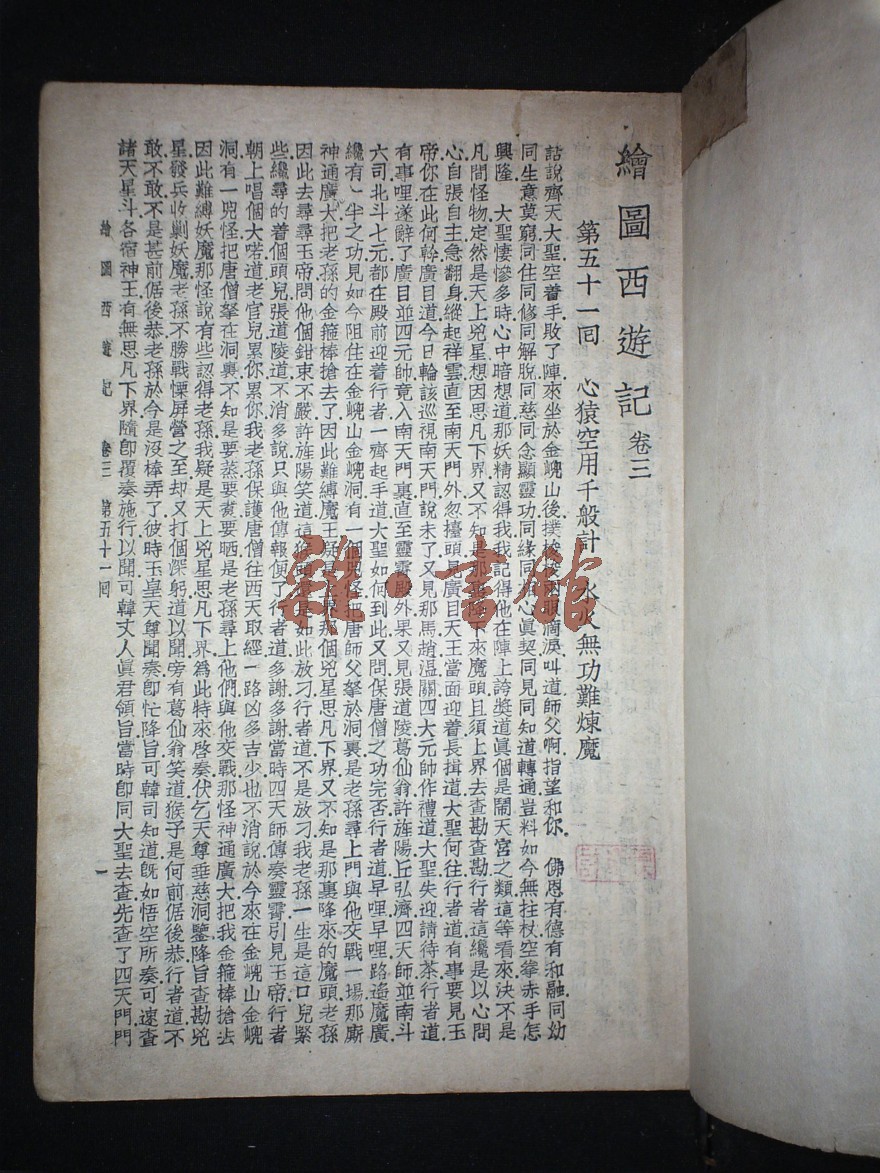 繪圖西遊記 卷三
第五十一回 心猿空用千般計 水火無功難煉魔
話說齊天大聖空着手敗了陣來坐於金𡶴山後撲梭梭兩眼滴淚叫道師父啊指望和你 佛恩有德有和融同幼
同生意莫窮同住同修同解脫同慈同念顯靈功同緣同 心真契同見同知道轉通豈料如今無拄杖空拳赤手怎
興隆 大聖悽慘多時心中暗想道那妖精認得我我記得他在陣上誇獎道真個是鬧天宮之類這等看來決不是
凡間怪物定然是天上兇星想因思凡下界又不知是那裏降下來魔頭且須上界去查勘查勘行者這纔是以心問
心自張自主急翻身縱起祥雲直至南天門外忽擡頭見廣目天王當面迎着長揖道大聖何往行者道有事要見玉
帝你在此何幹廣目道今日輪該巡視南天門說未了又見那馬趙溫關四大元帥作禮道大聖失迎請待茶行者道
有事哩遂辭了廣目並四元帥竟入南天門裏直至靈霄殿外果又見張道陵葛仙翁許旌陽丘弘濟四天師並南斗
六司北斗七元都在殿前迎着行者一齊起手道大聖如何到此又問保唐僧之功完否行者道早哩早哩路遙魔廣
纔有一半之功見如今阻住在金𡶴山金𡶴洞有一個兕怪把唐師父拏於洞裏是老孫尋上門與他交戰一場那廝
神通廣大把老孫的金箍棒搶去了因此難縛魔王疑是上界那個兇星思凡下界又不知是那裏降來的魔頭老孫
因此去尋尋玉帝問他個鉗束不嚴許旌陽笑道這猴頭還是如此放刁行者道不是放刁我老孫一生是這口兒緊
些纔尋的着個頭兒張道陵道不消多說只與他傳報便了行者道多謝多謝當時四天師傳奏靈霄引見玉帝行者
朝上唱個大喏道老官兒累你累你我老孫保護唐僧往西天取經一路凶多吉少也不消說於今來在金𡶴山金𡶴
洞有一兕怪把唐僧拏在洞裏不知是要蒸要煑要晒是老孫尋上他們與他交戰那怪神通廣大把我金箍棒搶去
因此難縛妖魔那怪說有些認得老孫我疑是天上兇星思凡下界爲此特來啓奏伏乞天尊垂慈洞鑒降旨查勘兇
星發兵收剿妖魔老孫不勝戰慄屏營之至却又打個深躬道以聞旁有葛仙翁笑道猴子是何前倨後恭行者道不
敢不敢不是甚前倨後恭老孫於今是沒棒弄了彼時玉皇天尊聞奏卽忙降旨可韓司知道旣如悟空所奏可速查
諸天星斗各宿神王有無思凡下界隨卽覆奏施行以聞可韓丈人眞君領旨當時卽同大聖去查先查了四天門門
繪圖西遊記 卷三 第五十一回 一
雜·書館